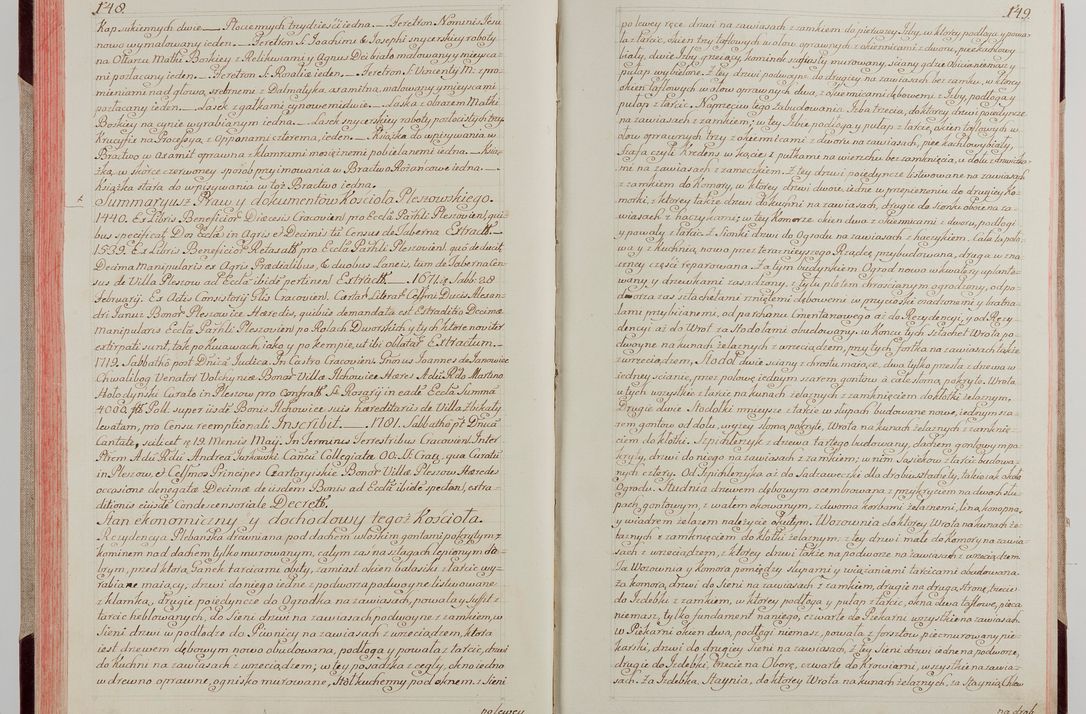 148.
Kap sukiennych dwie — Płociennych trzydzieści iedna. — Feretron Nominis Jesu
nowo wymalowany ieden. — Feretron S. Joachimi & Josephi snycerskiey roboty
na Ołtarzu Matki Boskiey z Relikwiami y Agnus Dei biało malowany y mieysca-
mi pozłacany ieden. — Feretron S. Rosalie ieden. — Feretron S. Vincenty M. z pro-
mieniami nad głową, srebrnemi z Dalmatyką axamitną, malowany y mieyscami
pozłacany ieden. — Lasek z gałkami cynowemi dwie. — Laska z obrazem Matki
Boskiey na cynie wyrabianym iedna. — Lasek snycerskiey roboty pozłocistych trzy.
Krucyfix na Processyą z Opponami czterema, ieden. — Książka do wpisywania w
Bractwo w Axamit oprawna z klamrami mosiężnemi pobielanemi iedna. — Ksią-
żka w skórce czerwoney sposób przyimowania w Bractwo Rożańcowe iedna. —
Książka stara do wpisywania w toż Bractwo iedna.
Summaryusz Praw y dokumentow Kościoła Pleszowskiego.
1440. Ex Libris Beneficior Diœcesis Cracovien pro Eccla Parhli Pleszovien, qui-
bus specificat Dos Eccla in Agris et Decimis tum Census de Taberna Extractt —
1539. Ex Libris Beneficior Retaxatt pro Eccla Parhli Pleszovien quo deducit
Decima Manipularis ex Agris Prædialibus, & duobus Laneis, tum de Taberna Cen-
sus de Villa Pleszow ad Eccla ibide pertinen Extractt. — 1671. Sabb: 28
Februarij. Ex Actis Consistorij Glis Cracovien. Cærtæ Literæ Celsmi Ducis Alexan-
dri Janus Bonor Pleszowice Hæredis, quibus demandata est Extraditio Decimæ
Manipularis Eccla Parhli Pleszovien po Rolach Dworskich y tych które noviter
extirpate sunt, tak po Kuwawach, iako y po kempie, ut ibi oblatæ. Extractum. —
1719. Sabbatho post Dnica Judica. In Castro Cracovien. Gnosus Joannes de Janowice
Chwalibog Venator Volhyniæ Bonor Villæ Ilchowice Hæres Adii Rdo Martino
Hołodynski Curato in Pleszow pro Confratt S. Rosarij in eade Eccla Summa
4000. flł Poll. super iisde Bonis Ilchowice suis hæreditariis de Villa Skikaly
levatam, pro Censu reemptionali Inscribit. — 1781. Sabbatho pt Dnica
Cantate, scilicet 19. Mensis Maij. In Terminis Terrestribus Cracovien. Inter
Prem Adu Rdu Andrea Jurkowski Canci Collegiata OO. SS. Crac, qua Curatu
in Pleszow, et Celsmos Principes Czartoryiskie Bonor Villæ Pleszow Hæredes
occasione denegatæ Decimæ de iisdem Bonis ad Eccla ibide spectan, extra-
ditionis eiusde Condescensoriale Decrett.
Stan ekonomiczny y dochodowy tegoż Kościoła.
Rezydencya Plebańska drewniana pod dachem włoskim gontami pokrytym z
kominem nad dachem tylko murowanym, całym zas na sztagach lepionym do-
brym, przed którą Ganek tarcicami obity, zamiast okien balasiki z tarcic wy-
rabiane maiący, drzwi do niego iedne z podworza podwoyne listwowane
z klamką, drugie poiedyncze do Ogrodka na zawiasach, powała y sufit z
tarcic heblowanych, do Sieni drzwi na zawiasach podwoyne z zamkiem, w
Sieni drzwi w podłodze do Piwnicy na zawiasach z wrzeciądzem, ktora
iest drzewem dębowym nowo obudowana, podłoga y powała z tarcic, drzwi
do kuchni na zawiasach z wrzeciądzem; w tey posadzka z cegły, okno iedno
w drewno oprawne, ognisko murowane, Stół kuchenny pod oknem z Sieni
po lewey
149.
po lewey ręce drzwi na zawiasach z zamkiem do pierwszey Izby, w ktorey podłoga y powa-
ła z tarcic, okien trzy taflowych w ołow oprawnych z okiennicami z dworu, piec kachlowy
biały, dwie Izby grzeiący, kominek suffusty murowany, sciany gdzie Obicia niemasz y
pułap wybielone. Z tey drzwi podwoyne do drugiey na zawiasach bez zamku, w ktorey
okien taflowych w ołow oprawnych dwa, z okiennicami dębowemi z Izby, podłoga y
pułap z tarcic. Naprzeciw tego zabudowania Izba trzecia, do ktorey drzwi poiedyncze
na zawiasach z zamkiem; w tey Izbie podłoga y pułap z tarcic, okien taflowych w
ołow oprawnych trzy z okiennicami z dworu na zawiasach, piec kachlowy biały,
Szafa czyli Kredens w kącie z pułkami na wierzchu bez zamknięcia, w dolu z drzwiczka-
mi na zawiasach z zameczkiem. Z tey drzwi poiedyncze listwowane na zawiasach
z zamkiem do Komory, w ktorey drzwi dwoie, iedne w przepierzeniu do drugiey Ko-
morki, z ktorey także drzwi do kuchni na zawiasach, drugie do sionki oboie na za-
wiasach z haczykami; w tey Komorze okien dwa z okiennicami z dworu, podłogi
y powały z tarcic. Z Sionki drzwi do Ogrodu na zawiasach z haczykiem. Cała ta poło-
wa y z Kuchnią nowa przez teraznieyszego Rządcę przybudowana, druga w zna-
czney części reparowana. Za tym budynkiem Ogrod nowo w kwatery uplanto-
wany y drzewkami zasadzony, z tyłu płotem chroscianym ogrodzony, od po-
dworza zas sztachetami rzniętemi dębowemi w przycioski osadzonemi y bratna-
lami przybiianemi, od parchonu Cmentarzowego aż do Rezydencyi, y od Rezy-
dencyi aż do Wrot za Stodołami obudowany. w końcu tych sztachet Wrota po-
dwoyne na kunach żelaznych z wrzeciądzem, przy tych Fortka na zawiasach także
z wrzeciądzem. Stodoł dwie wiązy z chrostu maiące, dwa tylko przęsła z drzewa w
iedney scianie, przez połowę iednym szarem gontow a całe słomą pokryte. Wrota
u tych wszystkie z tarcic na kunach żelaznych z zamknięciem do kłotki żelaznym.
Drugie dwie Stodolki mnieysze z tarcic w słupach budowane nowe, iednym sza-
rem gontow od dołu, wyżey słomą pokryte, Wrota na kunach żelaznych z zamknię-
ciem do kłotki. Szpichlerzyk z drzewa tartego budowany, dachem gontowym po-
kryty, drzwi do niego na zawiasach z zamkiem; w nim sąsiekow z tarcic budowa-
nych cztery. Od Szpichlerzyka aż do Sadzaweczki dla drobiu sztachety, takież iak około
Ogrodu. Studnia drzewem dębowym ocembrowana z przykryciem na dwoch słu-
pach gontowym, z wałem okowanym, z dwoma korbami żelaznemi, liną konopną,
y wiadrem żelazem należycie okutym. Wozownia do ktorey Wrota na kunach że-
laznych z zamknięciem do kłotki żelaznym: z tey drzwi małe do komory na zawia-
sach z wrzeciądzem, z ktorey drzwi także na podworze na zawiasach z wrzeciądzem.
Ta Wozownia y komora pomiędzy słupami y wiązaniami tarcicami obudowana.
Za komorą, drzwi do Sieni na zawiasach z zamkiem, drugie na drugą stronę, trzecie
do Izdebki z zamkiem, w ktorey podłoga y pułap z tarcic, okna dwa taflowe, pieca
niemasz, tylko fundament na niego, czwarte do Piekarni wszystkie na zawiasach.
W Piekarni okien dwa, podłogi niemasz, powała z forsztow, piec murowany pie-
karski, drzwi do drugiey Sieni na zawiasach. Z tey Sieni drzwi iedne na podworze,
drugie do Izdebki, trzecie na Oborę, czwarte do Krowiarni, wszystkie na zawia-
sach. Za Izdebką, Staynia, do ktorey Wrota na kunach żelaznych, za Staynią Chlew
na drob